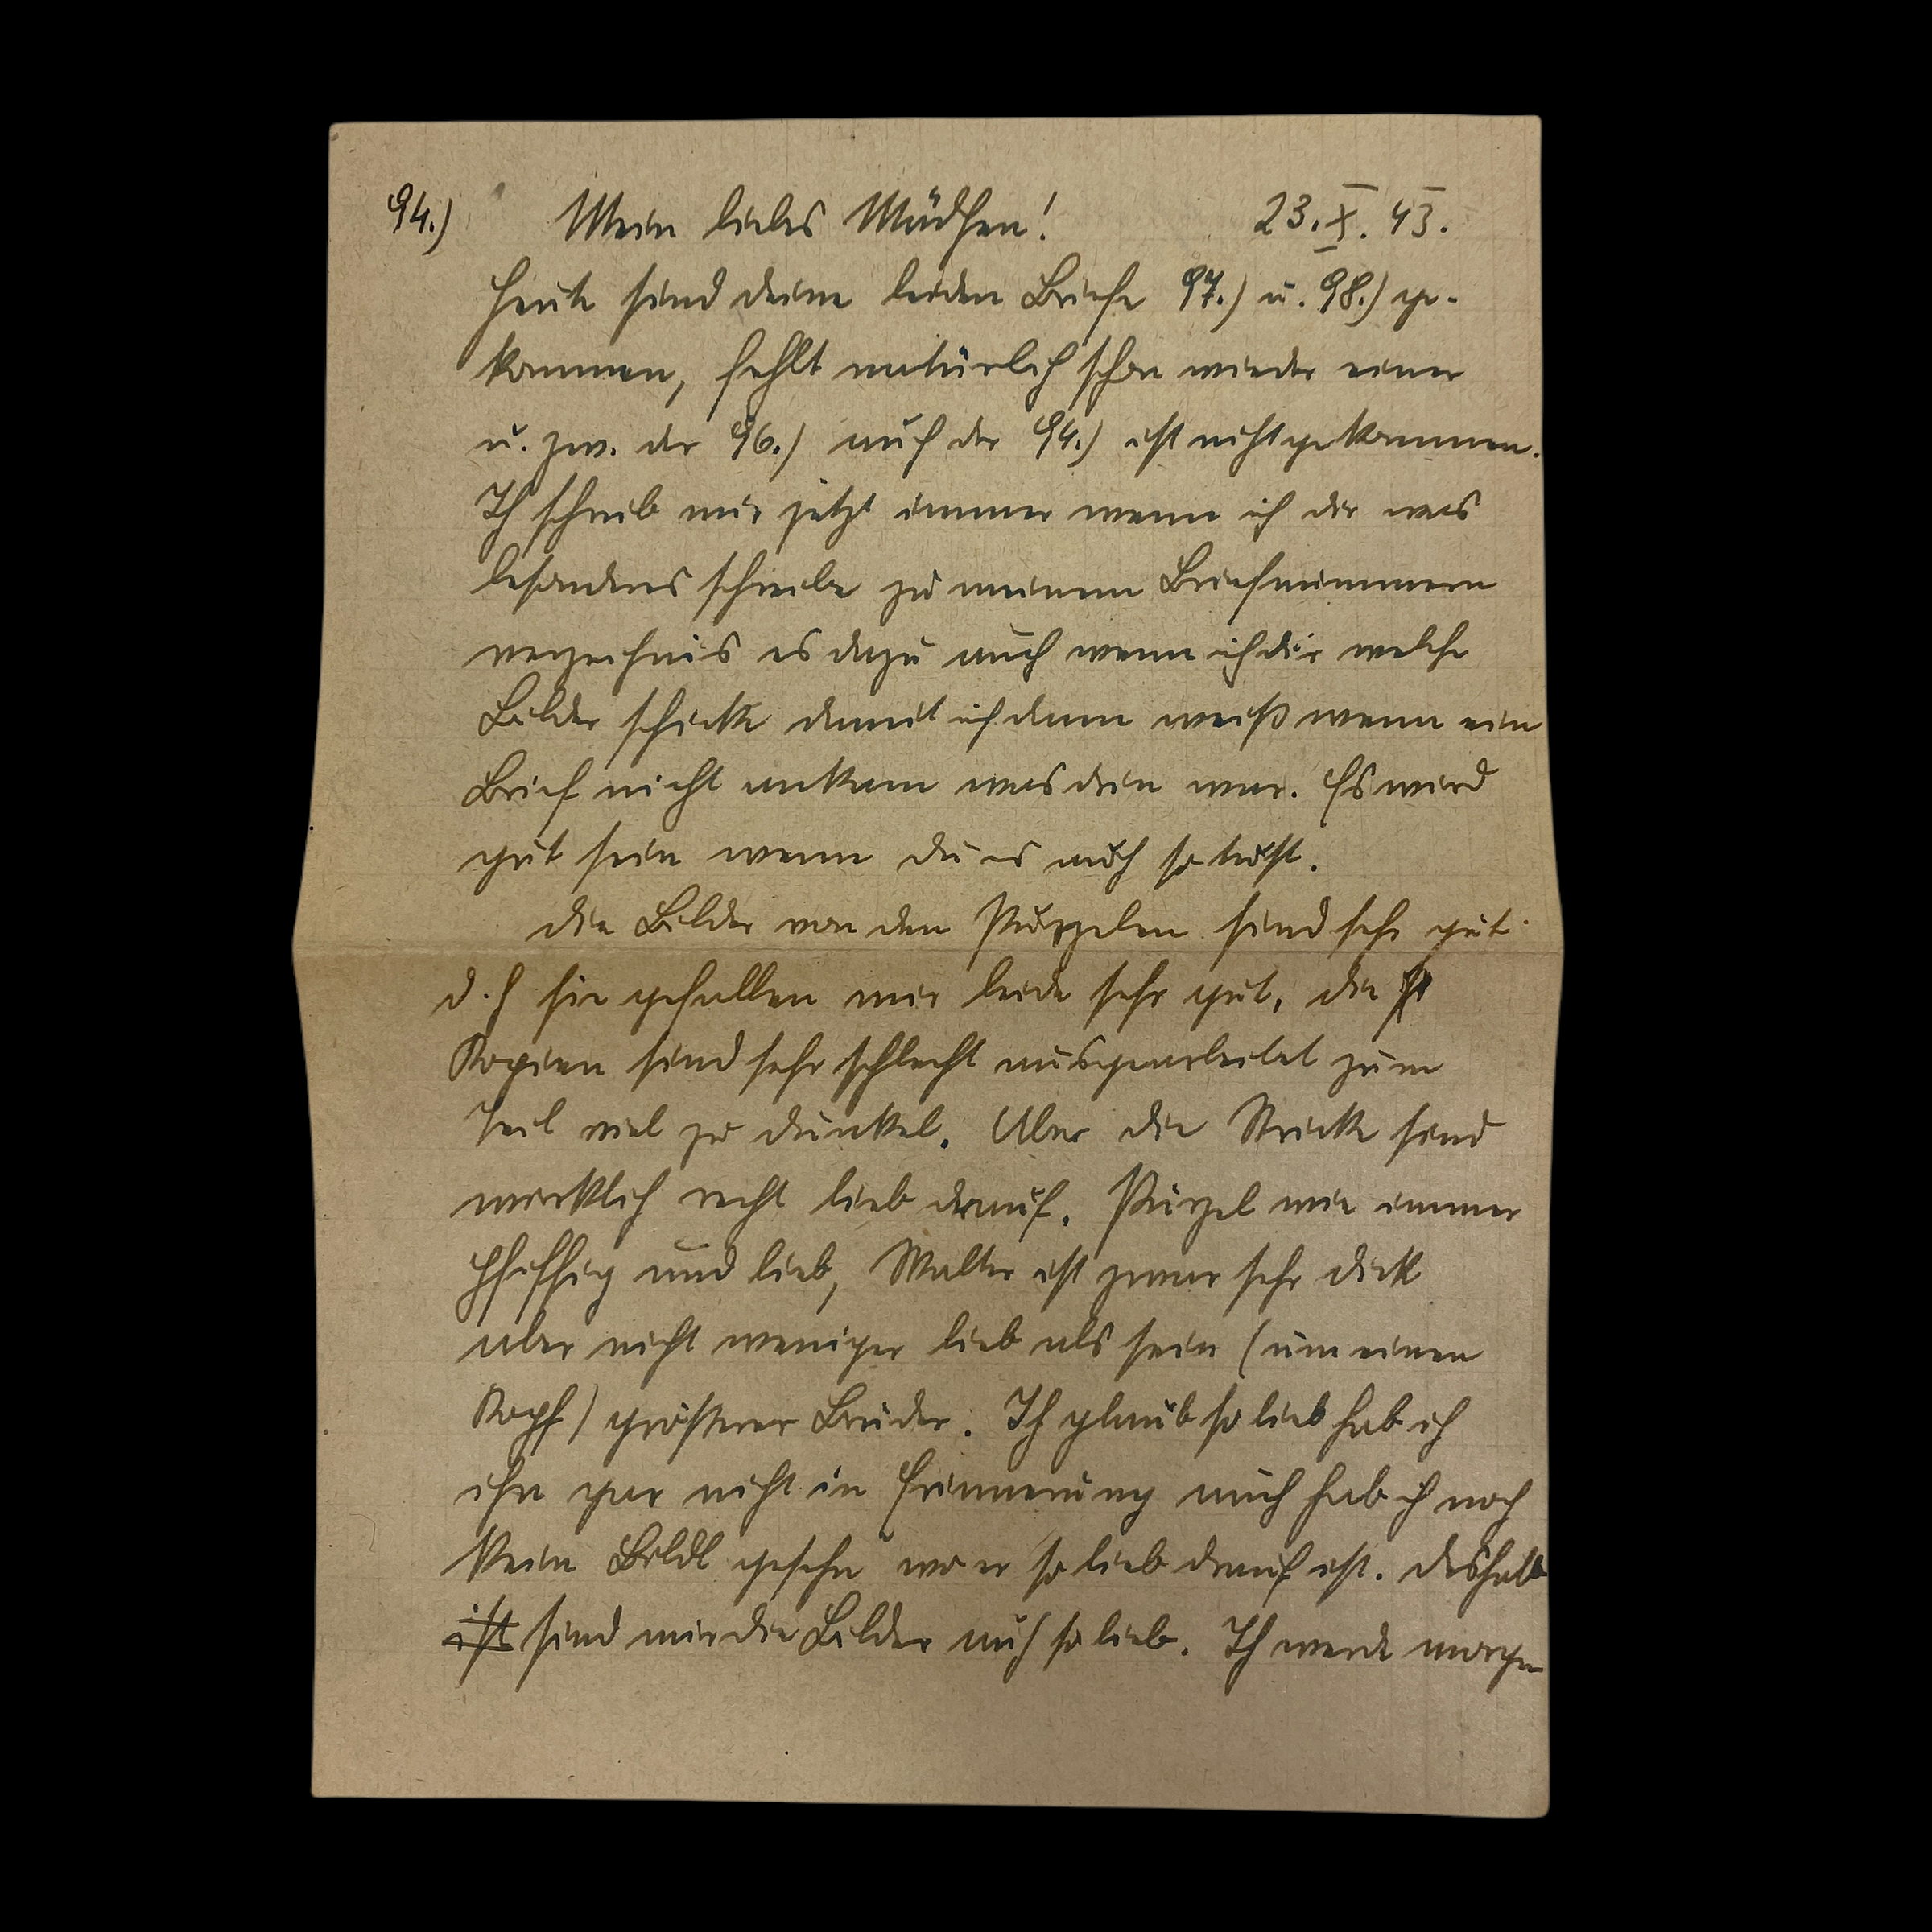 94.) Mein liebes Mädchen! 23.X.43.
Heute sind deine beiden Briefe 97.) u. 98.) ge-
kommen, fehlt natürlich schon wieder einer
u. zw. der 96.) auch der 94.) ist nicht gekommen.
Ich schreib mir jetzt immer wenn ich dir was
besonderes schreibe zu meinem Briefnummern
verzeichnis es dazu auch wenn ich dir welche
Bilder schicke damit ich dann weiß wenn ein
Brief nicht ankam was drin war. Es wird
gut sein wenn du es auch so tust.
Die Bilder von den Purzeln sind sehr gut
d.h sie gefallen mir beide sehr gut, die
Kopien sind sehr schlecht ausgearbeitet zum
Teil viel zu dunkel. Aber die Stricke sind
wirklich recht lieb drauf. Purzel wie immer
pfiffig und lieb, Walter ist zwar sehr dick
aber nicht weniger lieb als sein (um einen
Kopf) grösserer Bruder. Ich glaub so lieb hab ich
ihn gar nicht in Erinnerung auch hab ich noch
kein Bildl gesehn wo er so lieb drauf ist. Deshalb
ist sind mir die Bilder auch so lieb. Ich werde morgen